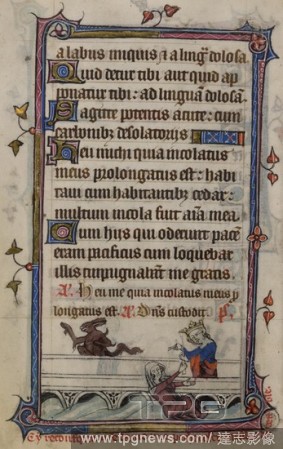 a labiis iniquis ⁊ a ling̃ dolosa.
Quid detur tibi aut quid ap
ponatur tibi: ad linguã dolosã.
Sagitte potentis acute: cum
carbonibꝫ desolatoriis
Heu michi quia incolatus
meus prolongatus est: habi
taui cum habitantibꝫ cedar:
multum incola fuit aĩa mea
Cum hiis qui oderunt pacẽ
eram pacificus cum loquebar
illis inpugnabãt me gratis.
A. Heu me quia incolatus meus p
longatus est. A. Dñs custodit
TPG
www.tpgnews.com/達志影像